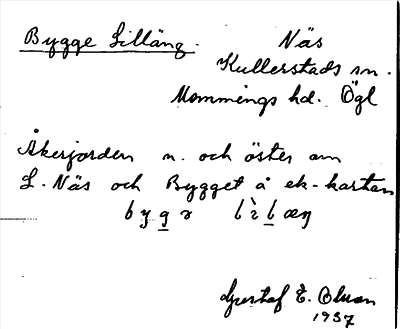 Bygge Lilläng.
Näs
Kullerstads sn.
Memmings hd. Ögl
Åkerjorden n. och öster om
L. Näs och Bygget å ek-kartan
Gustaf E. Olson
1937